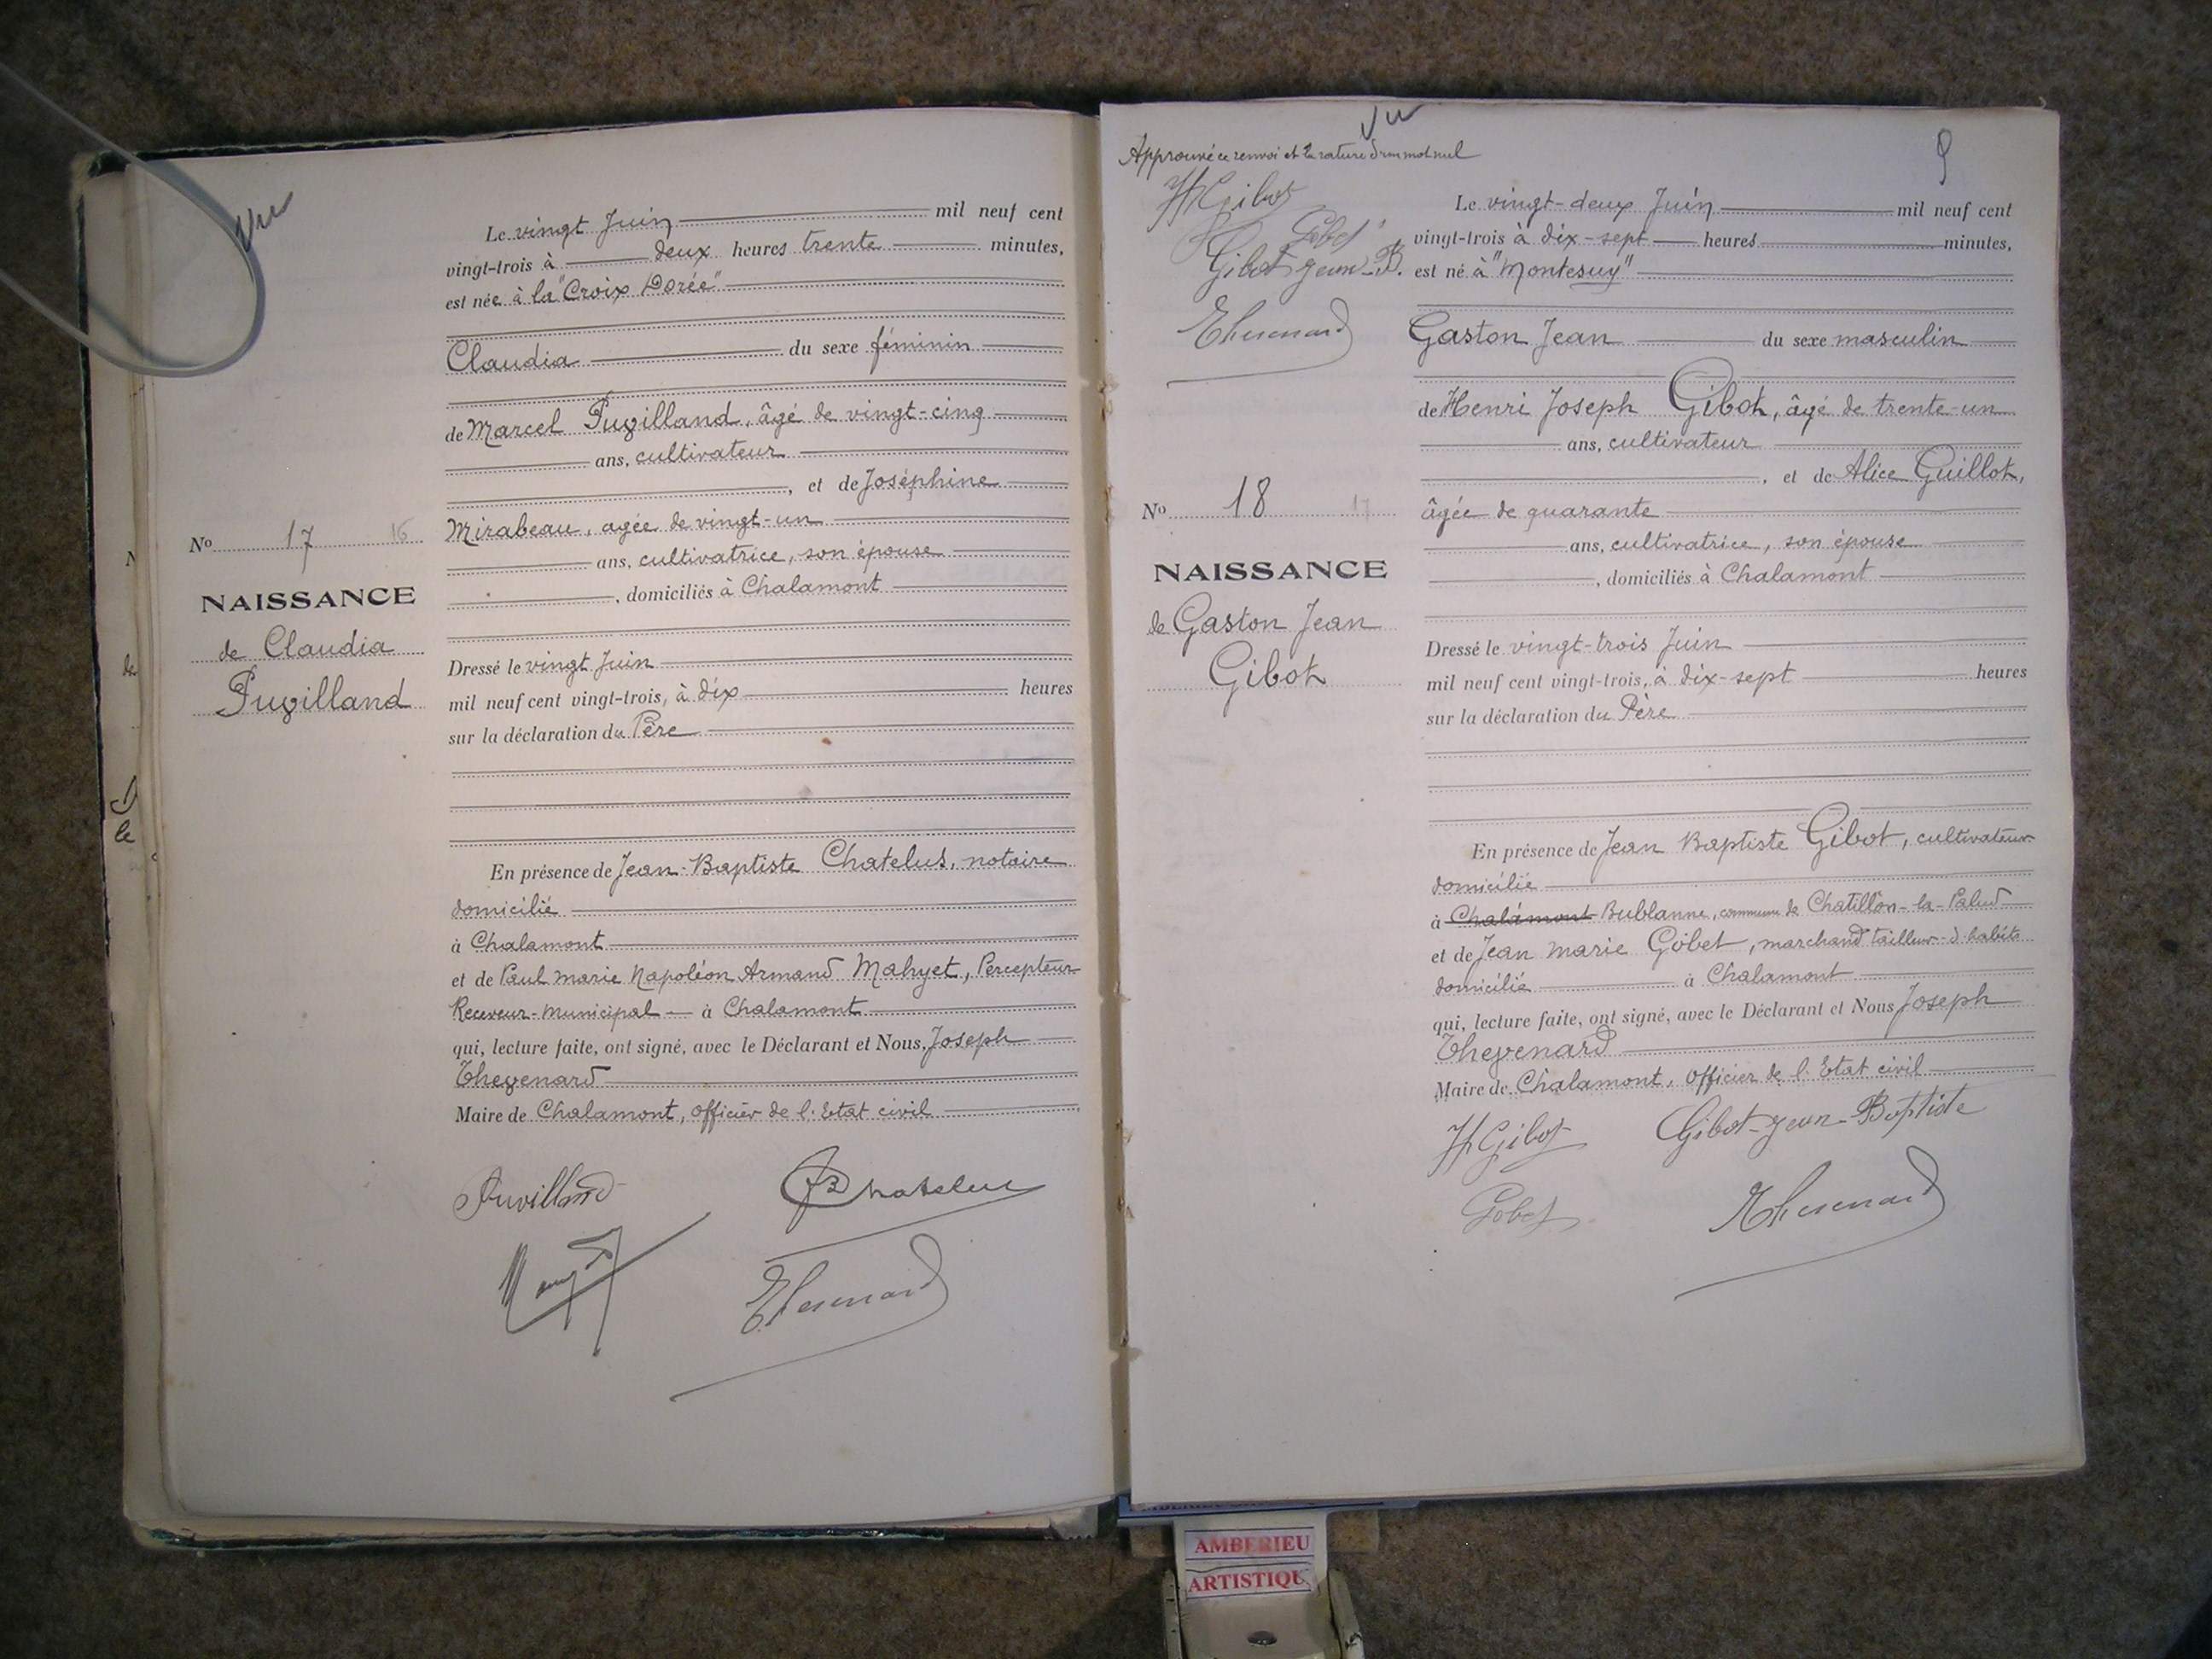 Vu
Le vingt Juin mil neuf cent
vingt-trois à deux heures trente minutes,
est née à la "Croix Dorée"
Claudia du sexe féminin
de Marcel Puvilland, âgé de vingt-cinq
ans, cultivateur
, et de Joséphine
Mirabeau, agée de vingt-un
ans, cultivatrice, son épouse
, domiciliés à Chalamont
No 17 16
NAISSANCE
de Claudia
Puvilland
Dressé le vingt Juin
mil neuf cent vingt-trois, à dix heures
sur la déclaration du Père
En présence de Jean-Baptiste Chatelus, notaire
domicilié
à Chalamont
et de Paul Marie Napoléon Armand Mahyet, Percepteur
Receveur-Municipal à Chalamont
qui, lecture faite, ont signé, avec le Déclarant et Nous, Joseph
Thevenard
Maire de Chalamont, officier de l'Etat civil
Puvilland
JB Chatelus
Thevenard
Vu
9
Approuvé ce renvoi et la rature d'un mot nul
H Gibot
Gobet
Gibot Jean-B.
Thevenard
Le vingt-deux Juin mil neuf cent
vingt-trois à dix-sept heures minutes,
est né à "Montesuy"
Gaston Jean du sexe masculin
de Henri Joseph Gibot, âgé de trente-un
ans, cultivateur
, et de Alice Guillot,
âgée de quarante
ans, cultivatrice, son épouse
, domiciliés à Chalamont
No 18 17
NAISSANCE
de Gaston Jean
Gibot
Dressé le vingt-trois Juin
mil neuf cent vingt-trois, à dix-sept heures
sur la déclaration du Père
En présence de Jean Baptiste Gibot, cultivateur
domicilié
à Chalamont Bublanne, commune de Chatillon-la-Palud
et de Jean Marie Gobet, marchand tailleur d'habits
domicilié à Chalamont
qui, lecture faite, ont signé, avec le Déclarant et Nous Joseph
Thevenard
Maire de Chalamont, officier de l'Etat civil
H Gibot
Gibot-Jean-Baptiste
Gobet
Thevenard
AMBERIEU
ARTISTIQU